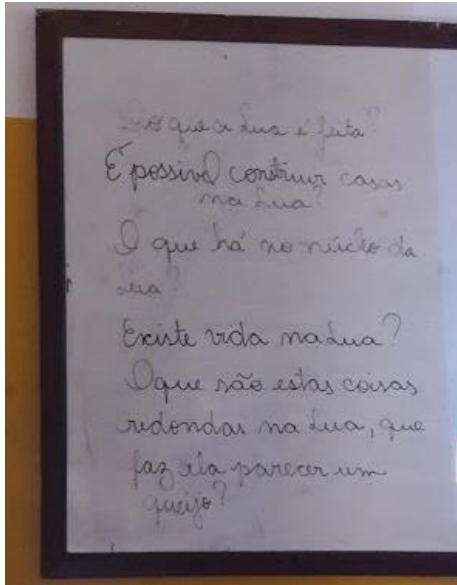 Do que a Lua é feita?
É possivel construir casas
na Lua?
O que há no núcleo da
Lua?
Existe vida na Lua?
O que são estas coisas
redondas na Lua, que
faz ela parecer um
queijo?